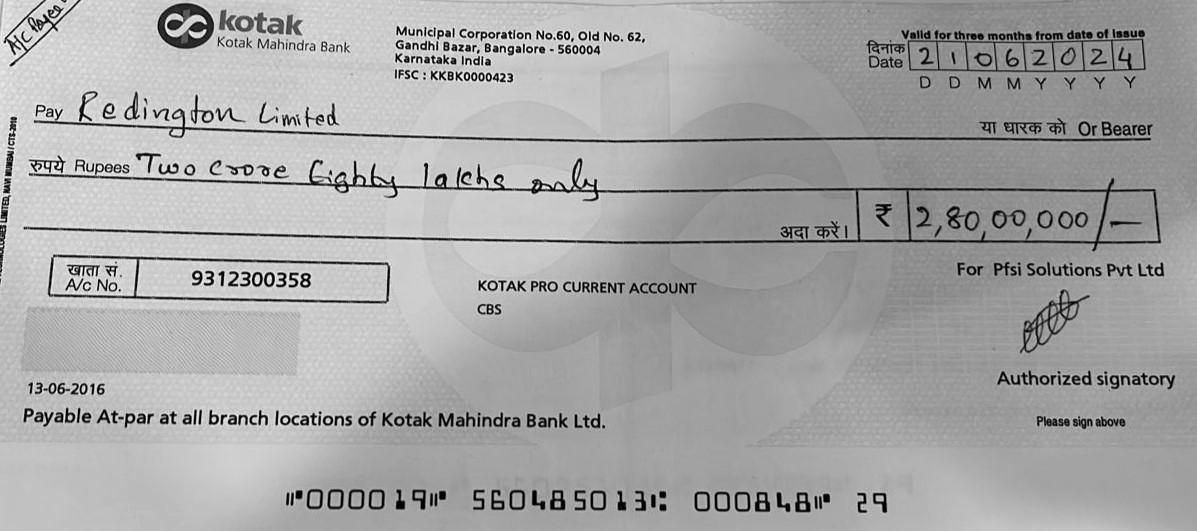 A/C Payee
kotak
Kotak Mahindra Bank
Municipal Corporation No.60, Old No. 62,
Gandhi Bazar, Bangalore - 560004
Karnataka India
IFSC : KKBK0000423
Valid for three months from date of issue
दिनांक
Date 2 1 0 6 2 0 2 4
D D M M Y Y Y Y
Pay Redington Limited
या धारक को Or Bearer
रुपये Rupees Two crore Eighty lakhs only
अदा करें। ₹ 2,80,00,000/-
खाता सं.
A/c No. 9312300358
KOTAK PRO CURRENT ACCOUNT
CBS
For Pfsi Solutions Pvt Ltd
Authorized signatory
Please sign above
13-06-2016
Payable At-par at all branch locations of Kotak Mahindra Bank Ltd.
⑈000019⑈ 560485013⑆ 000848⑈ 29
LIMITED, NAVI MUMBAI / CTS-2010